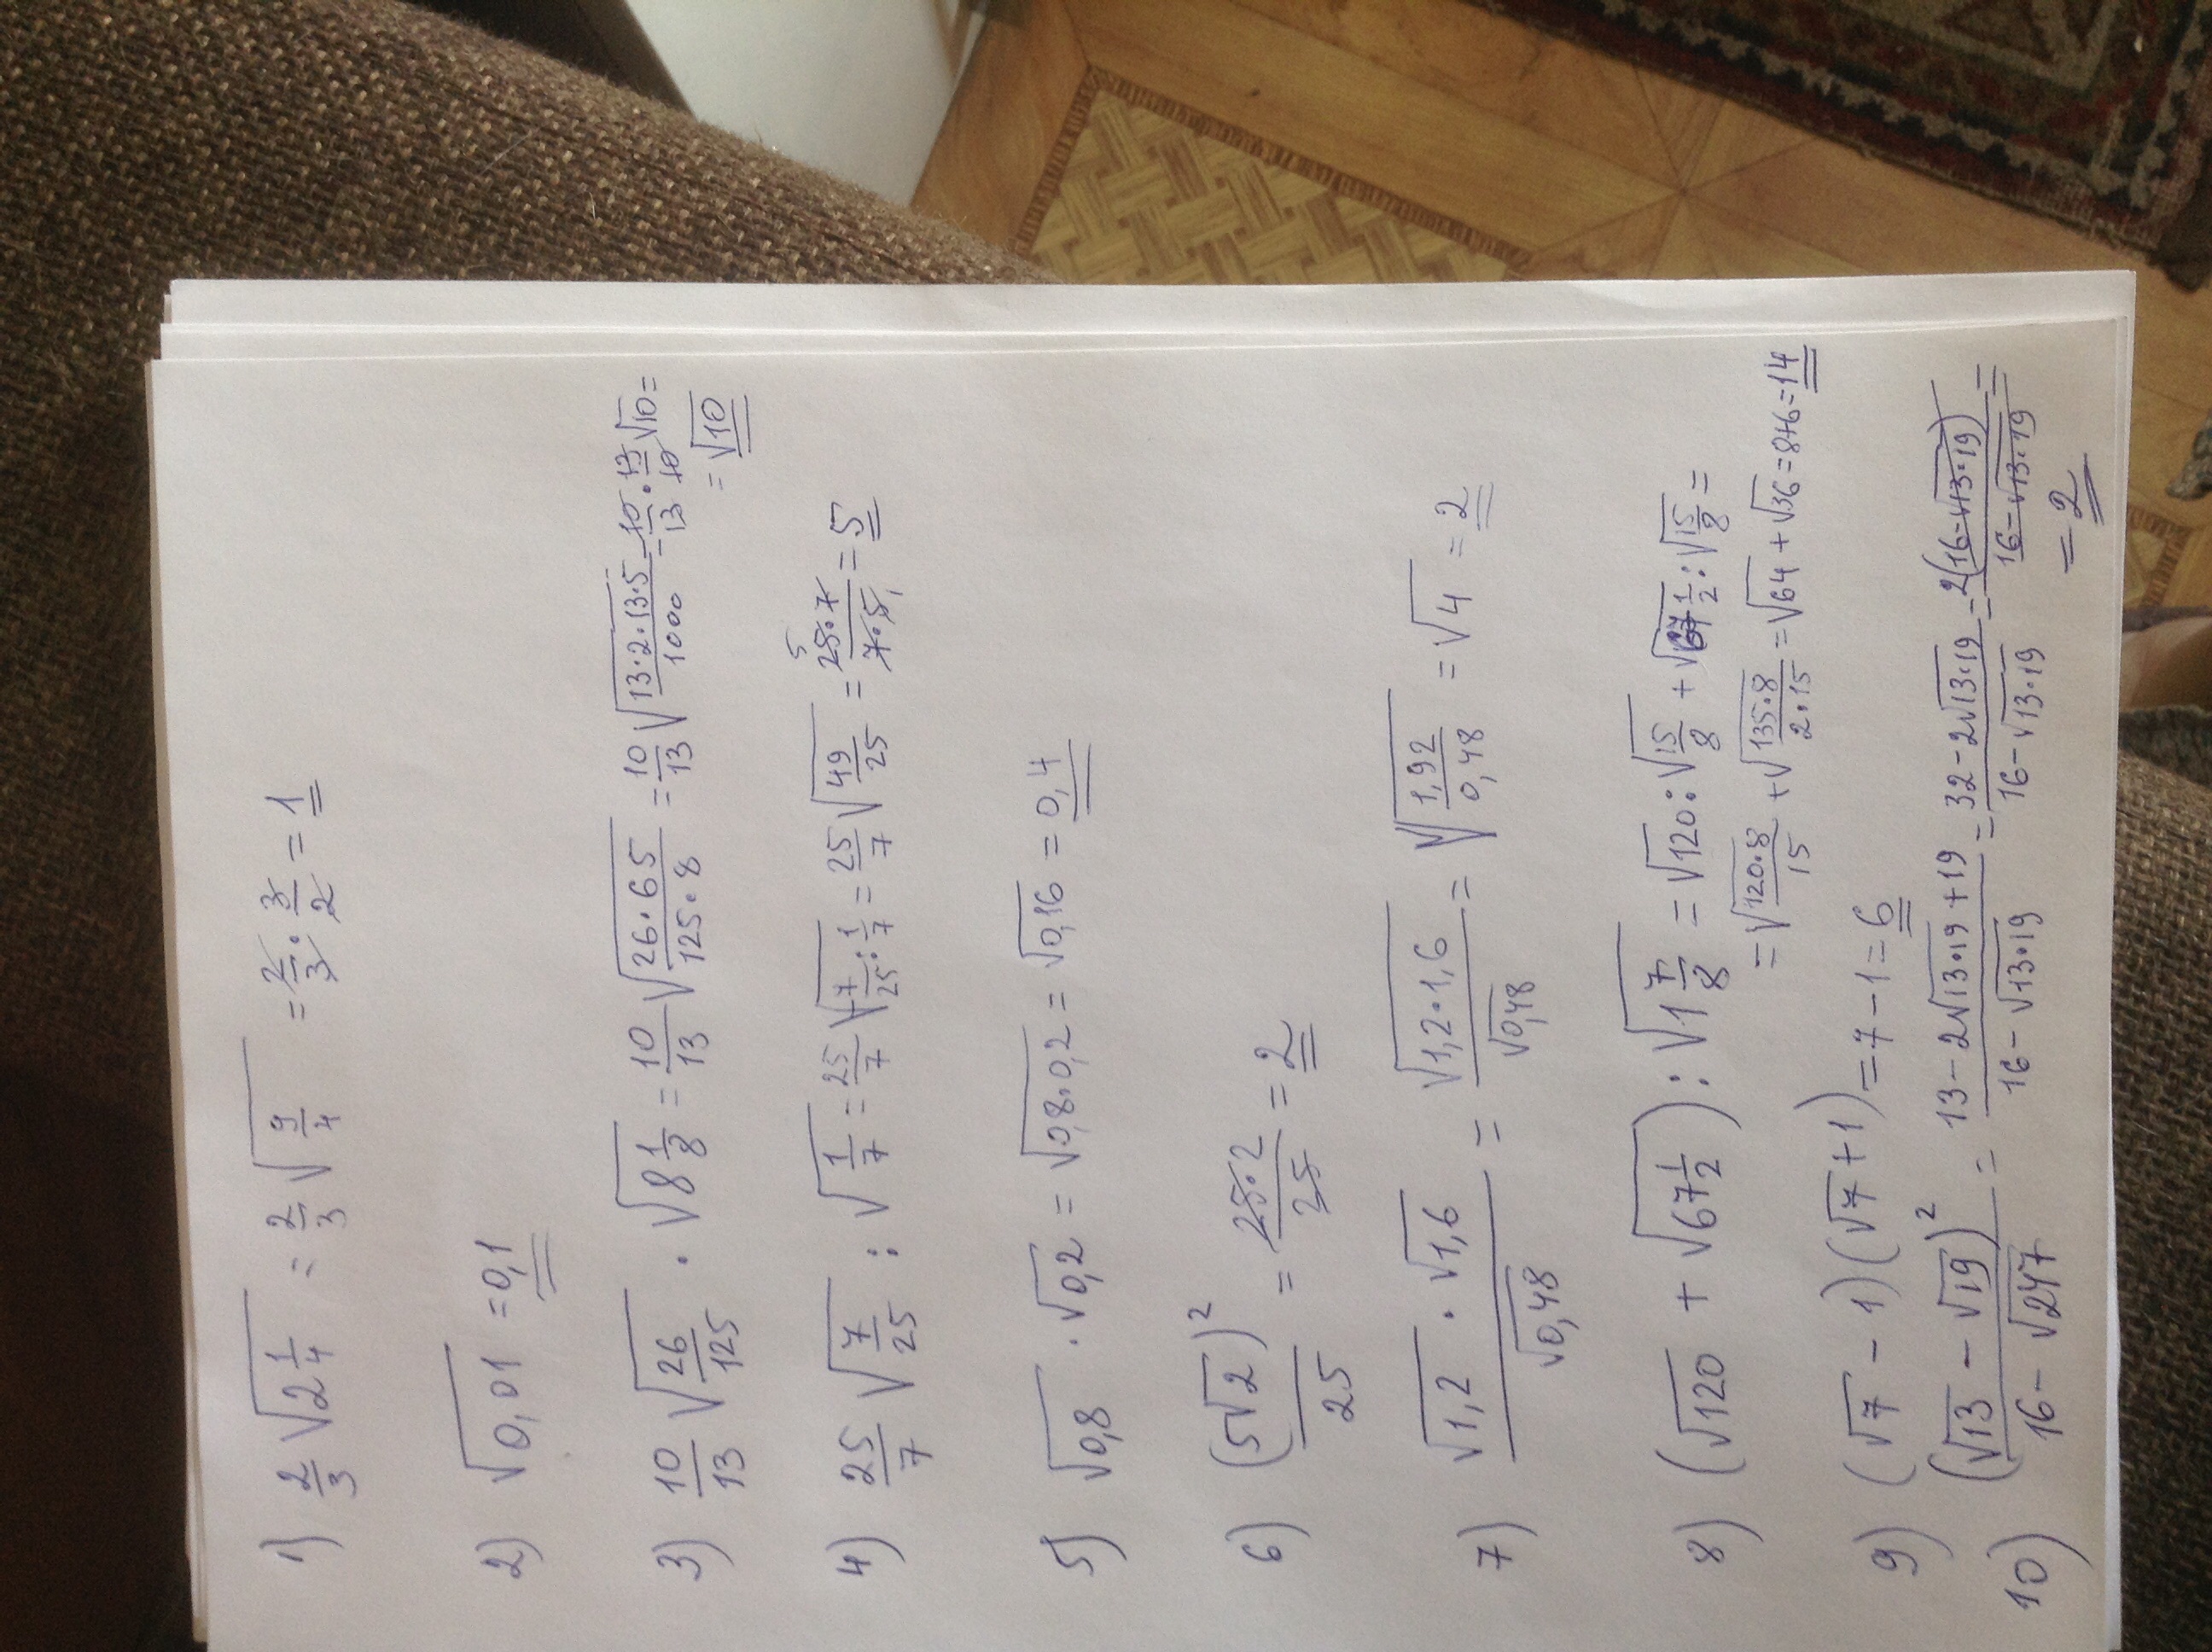 1) 2/3 √(2 1/4) = 2/3 √(9/4) = 2/3 · 3/2 = 1
2) √0,01 = 0,1
3) 10/13 √(26/125) · √(8 1/8) = 10/13 √(26·65/125·8) = 10/13 √(13·2·13·5/1000) = 10/13 · 13/10 √10 =
= √10
4) 25/7 √(7/25) : √(1/7) = 25/7 √(7/25 : 1/7) = 25/7 √(49/25) = 25·7/7·5 = 5
5) √0,8 · √0,2 = √(0,8·0,2) = √0,16 = 0,4
6) (5√2)²/25 = 25·2/25 = 2
7) √1,2 · √1,6/√0,48 = √(1,2·1,6)/√0,48 = √(1,92/0,48) = √4 = 2
8) (√120 + √(67 1/2)) : √(1 7/8) = √120 : √(15/8) + √(67 1/2) : √(15/8) =
= √(120·8/15) + √(135·8/2·15) = √64 + √36 = 8+6 = 14
9) (√7 - 1)(√7 + 1) = 7 - 1 = 6
10) (√13 - √19)²/16 - √247 = 13 - 2√(13·19) + 19/16 - √(13·19) = 32 - 2√(13·19)/16 - √(13·19) = 2(16 - √(13·19))/16 - √(13·19) =
= 2